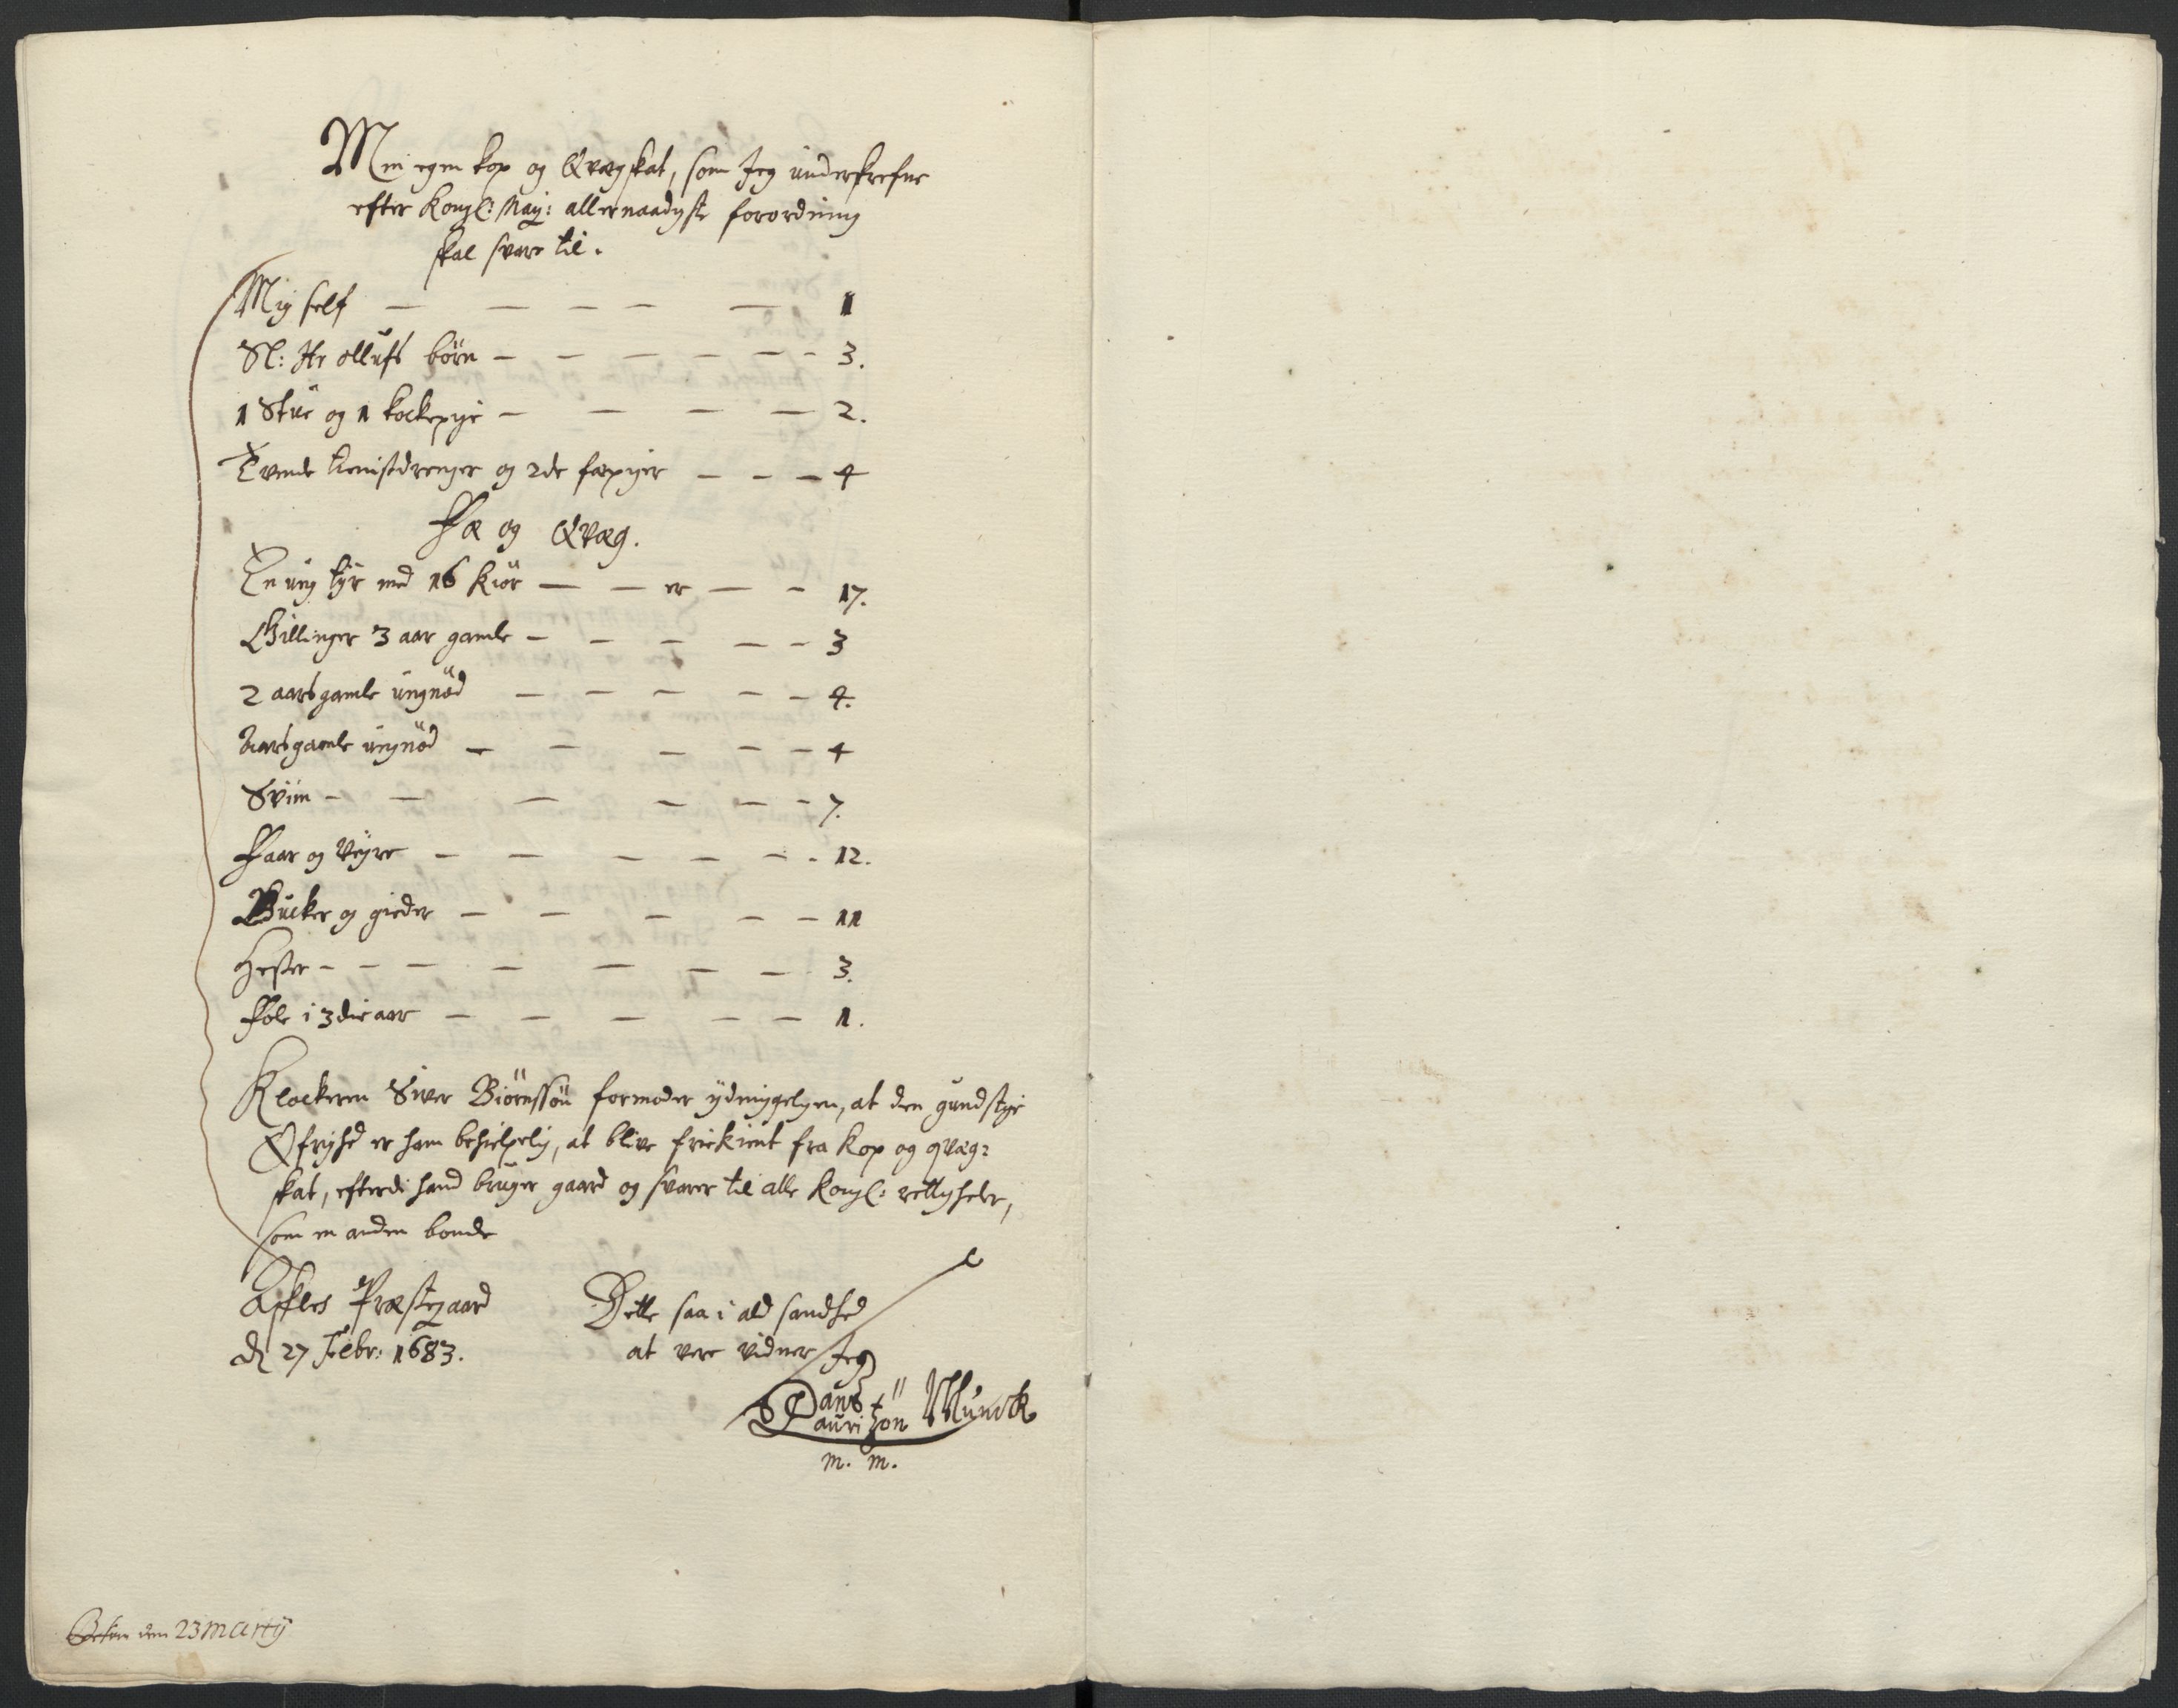 Min egen kop og Qvægskat, som Jeg underskrefne
efter Kongl: May: allernaadigste forordning
skal svare til.
Mig self — — — — — 1
Sl: Hr ollufs börn — — — — — — 3.
1 Stue og 1 kockepige — — — — 2.
Tvende tienistdrenger og 2de fæpiger — — — 4
Fæ og Qvæg.
En ung tyr med 16 kiör — — er — — 17.
Gillinger 3 aar gamle — — — — — 3
2 aars gamle ungnöd — — — — — 4.
Aarsgamle ungnöd — — — — — 4
Sviin — — — — — — 7.
Faar og Veyre — — — — — — 12.
Bucker og gieder — — — — — 11
Hester — — — — — — — 3.
Fole i 3die aar — — — — — 1.
Klockeren Siver Biörnssön formoder ydmygeligen, at den gundstige
Øfrighed er ham behielpelig, at blive friekient fra kop og qvæg=
skat, efterdi hand bruger gaard og svarer til alle kongl: rettigheder,
som en anden bonde
Præstegaard
d 27 Febr: 1683.
Dette saa i ald sandhed
at vere vidner Jeg
Laurizön Munck
m. m.
den 23 martij